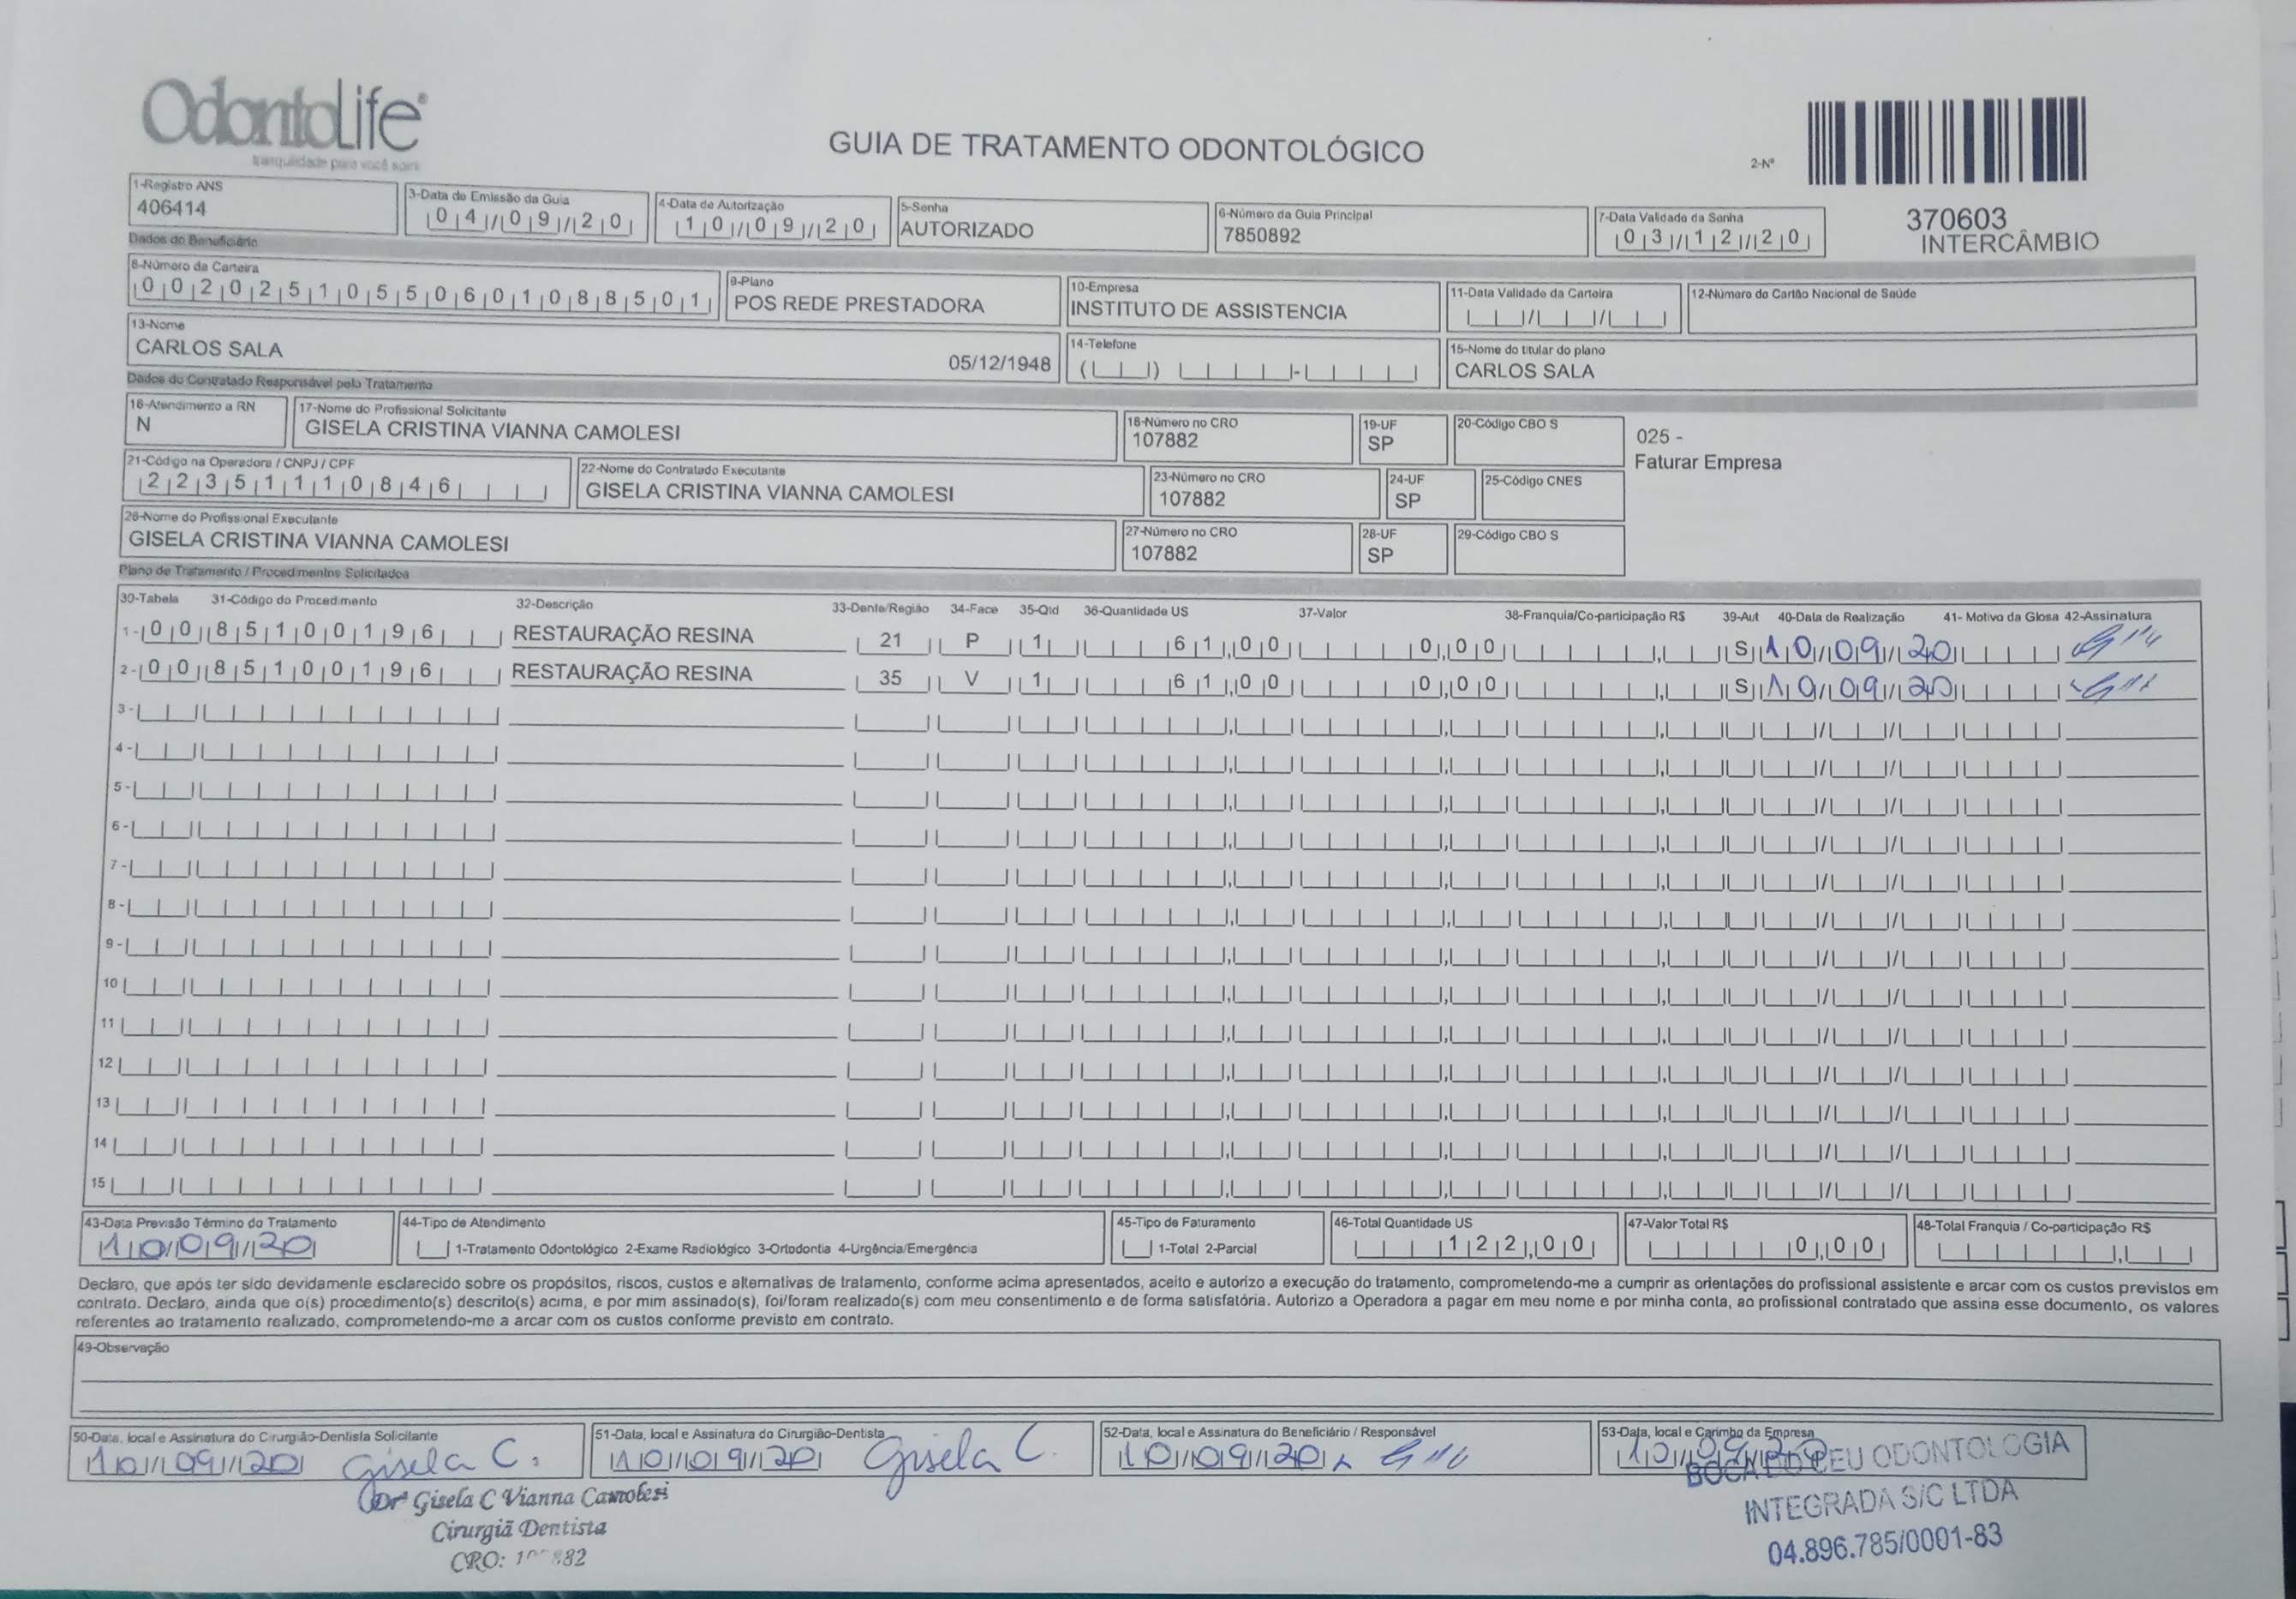 OdontoLife
tranquilidade para você sorrir
GUIA DE TRATAMENTO ODONTOLÓGICO
2-Nº
370603
INTERCÂMBIO
1-Registro ANS
406414
3-Data de Emissão da Guia
04/09/20
4-Data de Autorização
10/09/20
5-Senha
AUTORIZADO
6-Número da Guia Principal
7850892
7-Data Validade da Senha
03/12/20
Dados do Beneficiário
8-Número da Carteira
00202510550601088501
9-Plano
POS REDE PRESTADORA
10-Empresa
INSTITUTO DE ASSISTENCIA
11-Data Validade da Carteira
12-Número do Cartão Nacional de Saúde
13-Nome
CARLOS SALA 05/12/1948
14-Telefone
15-Nome do titular do plano
CARLOS SALA
Dados do Contratado Responsável pelo Tratamento
16-Atendimento a RN
N
17-Nome do Profissional Solicitante
GISELA CRISTINA VIANNA CAMOLESI
18-Número no CRO
107882
19-UF
SP
20-Código CBO S
025 -
Faturar Empresa
21-Código na Operadora / CNPJ / CPF
22351110846
22-Nome do Contratado Executante
GISELA CRISTINA VIANNA CAMOLESI
23-Número no CRO
107882
24-UF
SP
25-Código CNES
26-Nome do Profissional Executante
GISELA CRISTINA VIANNA CAMOLESI
27-Número no CRO
107882
28-UF
SP
29-Código CBO S
Plano de Tratamento / Procedimentos Solicitados
30-Tabela 31-Código do Procedimento 32-Descrição 33-Dente/Região 34-Face 35-Qtd 36-Quantidade US 37-Valor 38-Franquia/Co-participação R$ 39-Aut 40-Data de Realização 41- Motivo da Glosa 42-Assinatura
1- 00 85100196 RESTAURAÇÃO RESINA 21 P 1 61,00 0,00 S 10/09/20
2- 00 85100196 RESTAURAÇÃO RESINA 35 V 1 61,00 0,00 S 10/09/20
3-
4-
5-
6-
7-
8-
9-
10
11
12
13
14
15
43-Data Previsão Término do Tratamento
10/09/20
44-Tipo de Atendimento
1-Tratamento Odontológico 2-Exame Radiológico 3-Ortodontia 4-Urgência/Emergência
45-Tipo de Faturamento
1-Total 2-Parcial
46-Total Quantidade US
122,00
47-Valor Total R$
0,00
48-Total Franquia / Co-participação R$
Declaro, que após ter sido devidamente esclarecido sobre os propósitos, riscos, custos e alternativas de tratamento, conforme acima apresentados, aceito e autorizo a execução do tratamento, comprometendo-me a cumprir as orientações do profissional assistente e arcar com os custos previstos em
contrato. Declaro, ainda que o(s) procedimento(s) descrito(s) acima, e por mim assinado(s), foi/foram realizado(s) com meu consentimento e de forma satisfatória. Autorizo a Operadora a pagar em meu nome e por minha conta, ao profissional contratado que assina esse documento, os valores
referentes ao tratamento realizado, comprometendo-me a arcar com os custos conforme previsto em contrato.
49-Observação
50-Data, local e Assinatura do Cirurgião-Dentista Solicitante
10/09/20 Gisela C.
Drª Gisela C Vianna Camolesi
Cirurgiã Dentista
CRO:
51-Data, local e Assinatura do Cirurgião-Dentista
10/09/20 Gisela C.
52-Data, local e Assinatura do Beneficiário / Responsável
10/09/20
53-Data, local e Carimbo da Empresa
10/09/20
BOCA DO CEU ODONTOLOGIA
INTEGRADA S/C LTDA
04.896.785/0001-83